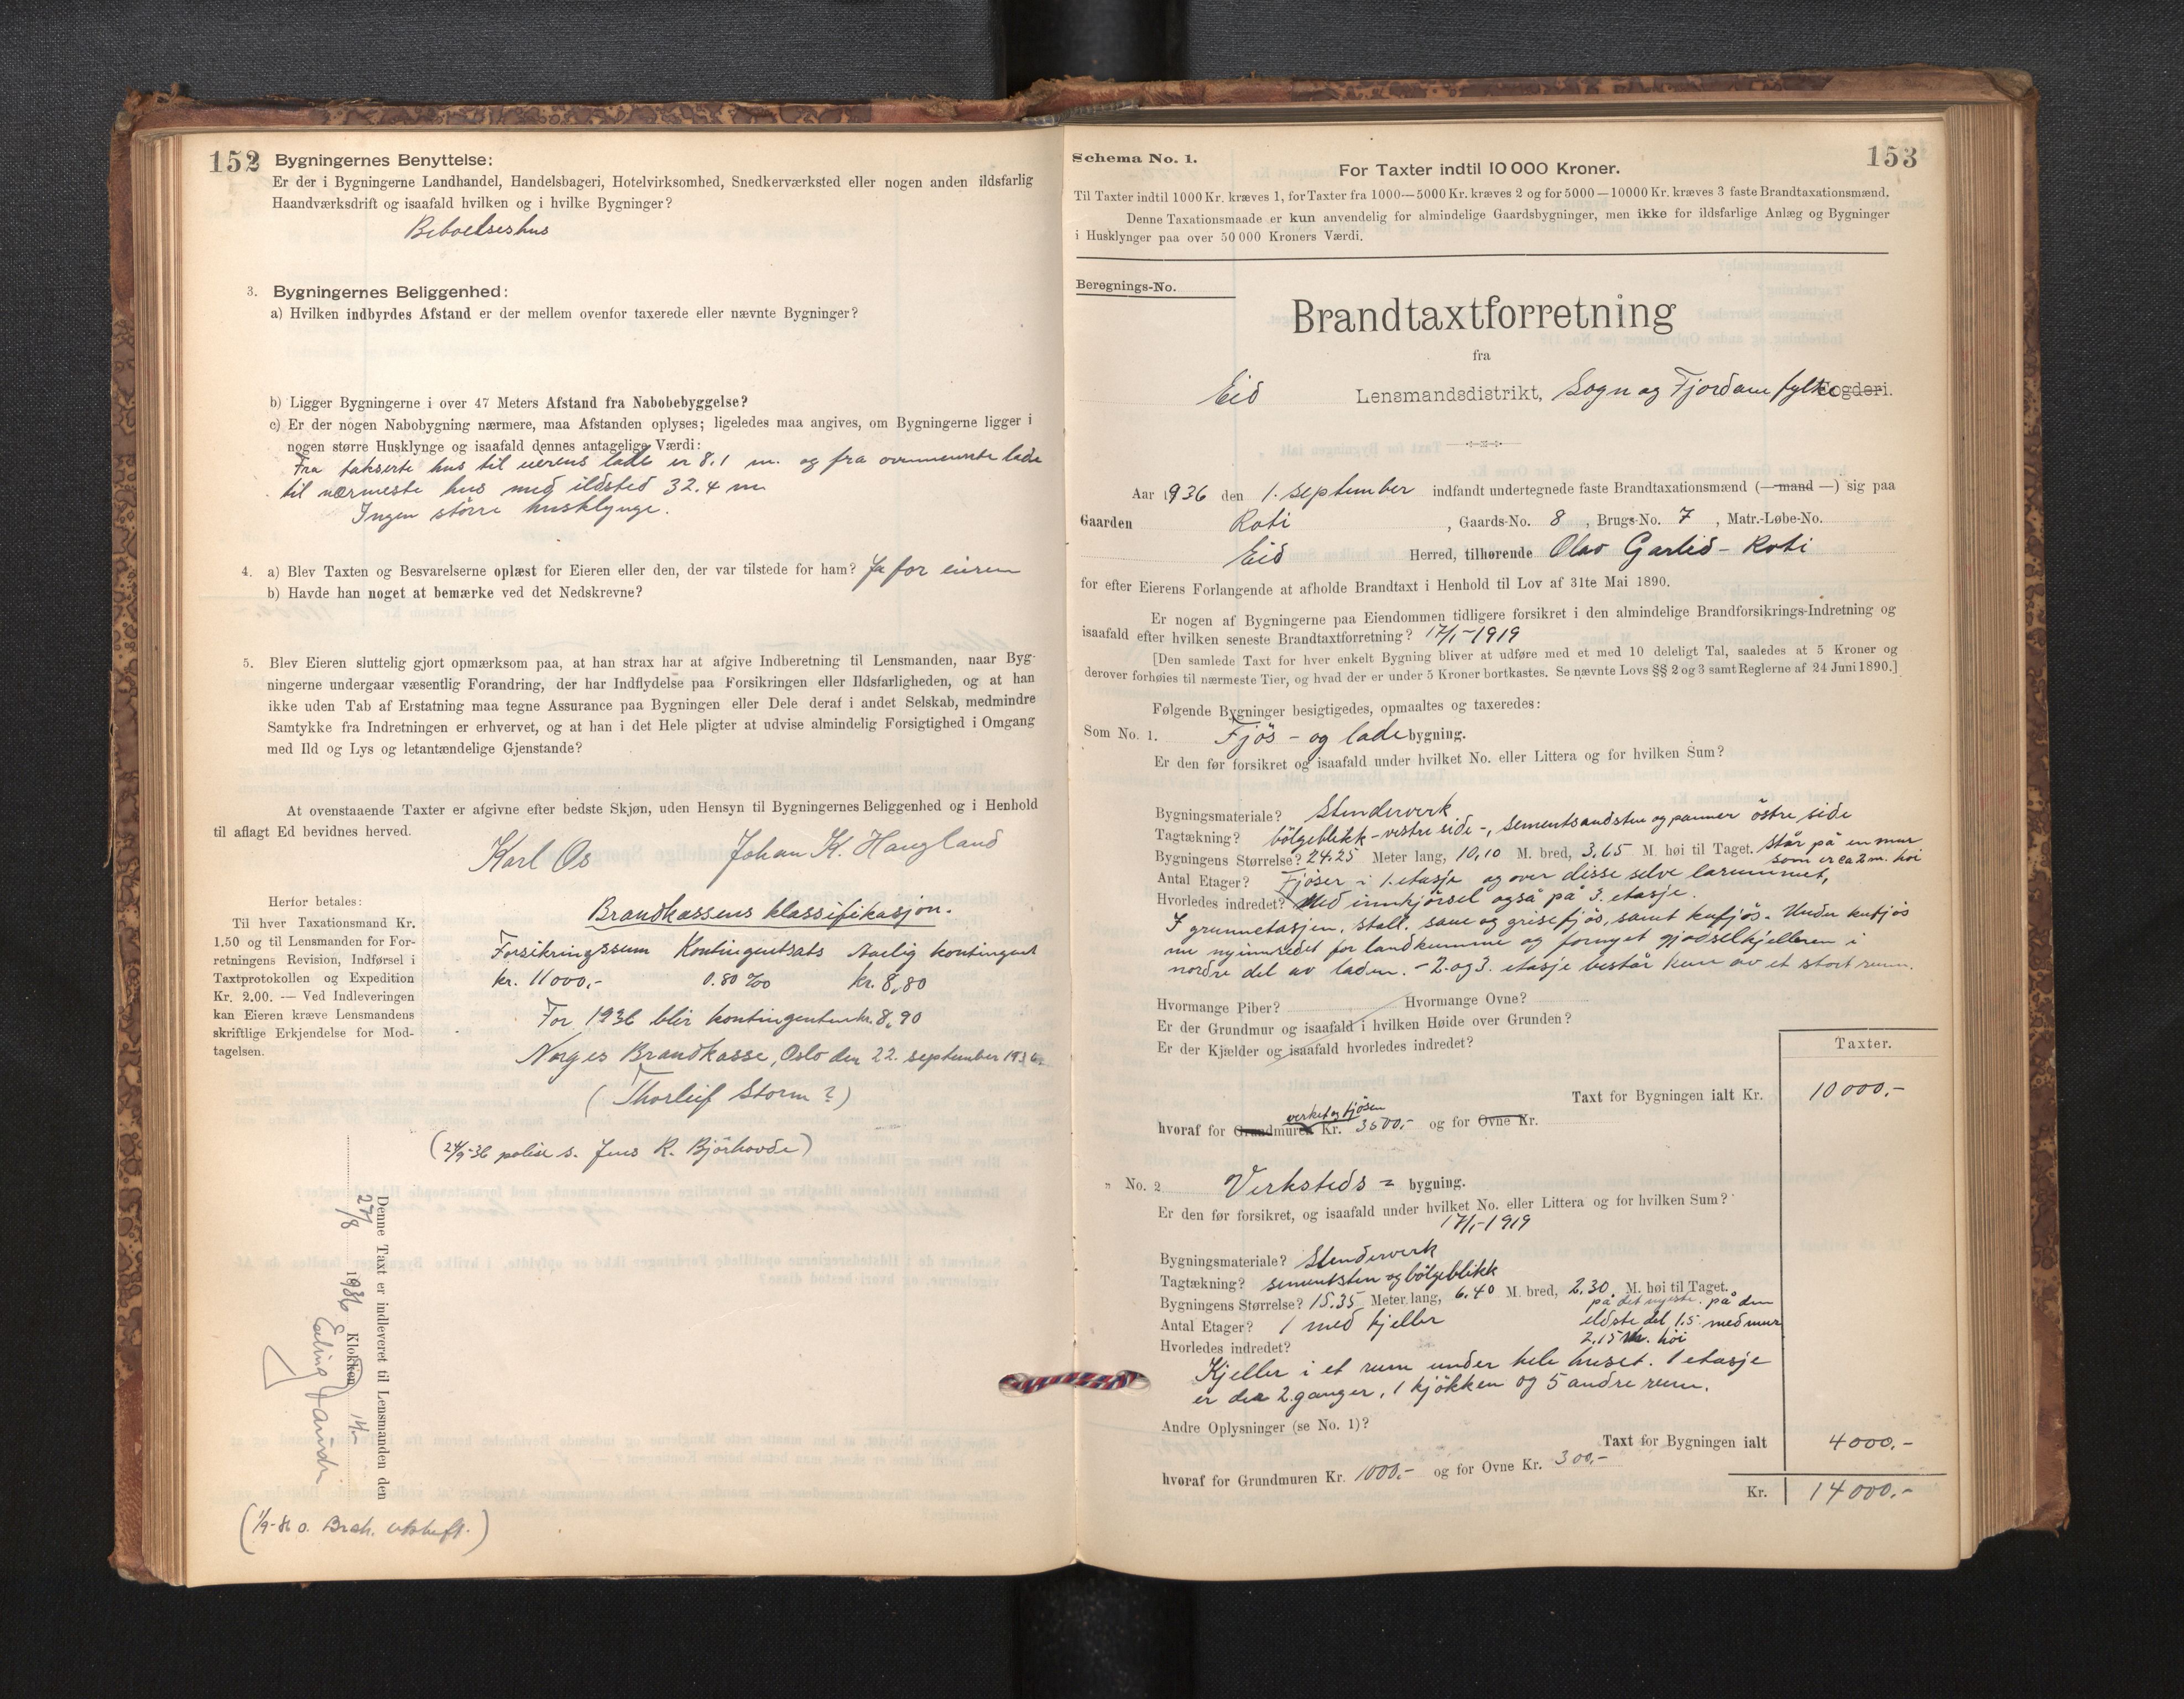 152
Bygningernes Benyttelse:
Er der i Bygningerne Landhandel, Handelsbageri, Hotelvirksomhed, Snedkerværksted eller nogen anden ildsfarlig
Haandværksdrift og isaafald hvilken og i hvilke Bygninger?
Beboelseshus
3. Bygningernes Beliggenhed:
a) Hvilken indbyrdes Afstand er der mellem ovenfor taxerede eller nævnte Bygninger?
b) Ligger Bygningerne i over 47 Meters Afstand fra Nabobebyggelse?
c) Er der nogen Nabobygning nærmere, maa Afstanden oplyses; ligeledes maa angives, om Bygningerne ligger i
nogen større Husklynge og isaafald dennes antagelige Værdi:
Fra takserte hus til eierens lade er 8.1 m. og fra ovennevnte lade
til nærmeste hus med ildsted 32.4 m
Ingen större husklynge.
4. a) Blev Taxten og Besvarelserne oplæst for Eieren eller den, der var tilstede for ham? Ja for eieren
b) Havde han noget at bemærke ved det Nedskrevne?
5. Blev Eieren sluttelig gjort opmærksom paa, at han strax har at afgive Indberetning til Lensmanden, naar Byg-
ningerne undergaar væsentlig Forandring, der har Indflydelse paa Forsikringen eller Ildsfarligheden, og at han
ikke uden Tab af Erstatning maa tegne Assurance paa Bygningen eller Dele deraf i andet Selskab, medmindre
Samtykke fra Indretningen er erhvervet, og at han i det Hele pligter at udvise almindelig Forsigtighed i Omgang
med Ild og Lys og letantændelige Gjenstande?
At ovenstaaende Taxter er afgivne efter bedste Skjøn, uden Hensyn til Bygningernes Beliggenhed og i Henhold
til aflagt Ed bevidnes herved.
Karl Os Johan K. Haugland
Herfor betales:
Til hver Taxationsmand Kr.
1.50 og til Lensmanden for For-
retningens Revision, Indførsel i
Taxtprotokollen og Expedition
Kr. 2.00. — Ved Indleveringen
kan Eieren kræve Lensmandens
skriftlige Erkjendelse for Mod-
tagelsen.
Brandkassens klassifikasjon.
Forsikringssum Kontingentsats Aarlig kontingent
kr. 11000,- 0.80 ‰ kr. 8,80
For 1936 blir kontingenten kr. 8,90
Norges Brandkasse, Oslo den 22. september 1936.
(Thorleif Storm?)
(24/9-36 polise s. Jens R. Bjørhovde)
Denne Taxt er indleveret til Lensmanden den
27/8 1936 Klokken 14-
Erling
(1/9-36 o. Brok. utskrift.)
Schema No. 1.
153
For Taxter indtil 10 000 Kroner.
Til Taxter indtil 1000 Kr. kræves 1, for Taxter fra 1000—5000 Kr. kræves 2 og for 5000—10000 Kr. kræves 3 faste Brandtaxationsmænd.
Denne Taxationsmaade er kun anvendelig for almindelige Gaardsbygninger, men ikke for ildsfarlige Anlæg og Bygninger
i Husklynger paa over 50 000 Kroners Værdi.
Beregnings-No.
Brandtaxtforretning
fra
Eid Lensmandsdistrikt, Sogn og Fjordane fylke Fogderi.
Aar 1936 den 1. september indfandt undertegnede faste Brandtaxationsmænd (—mand—) sig paa
Gaarden Roti, Gaards-No. 8, Brugs-No. 7, Matr.-Løbe-No.
Eid Herred, tilhørende Olav Garlid - Roti
for efter Eierens Forlangende at afholde Brandtaxt i Henhold til Lov af 31te Mai 1890.
Er nogen af Bygningerne paa Eiendommen tidligere forsikret i den almindelige Brandforsikrings-Indretning og
isaafald efter hvilken seneste Brandtaxtforretning? 17/1-1919
[Den samlede Taxt for hver enkelt Bygning bliver at udføre med et med 10 deleligt Tal, saaledes at 5 Kroner og
derover forhøies til nærmeste Tier, og hvad der er under 5 Kroner bortkastes. Se nævnte Lovs §§ 2 og 3 samt Reglerne af 24 Juni 1890.]
Følgende Bygninger besigtigedes, opmaaltes og taxeredes:
Som No. 1. Fjös - og lade bygning.
Er den før forsikret og isaafald under hvilket No. eller Littera og for hvilken Sum?
Bygningsmateriale? Stenderverk
Tagtækning? bölgeblikk - vestre side -, sementsandsten og panner östre side
Bygningens Størrelse? 24.25 Meter lang, 10,10 M. bred, 3,65 M. høi til Taget. står på en mur
som er ca 2 m. höi
Antal Etager? Fjöser i 1. etasje og over disse selve laerummet,
Hvorledes indredet? Med innkjörsel også på 3. etasje.
I grunnetasjen, stall, saue og grisefjös, samt kufjös. Under kufjös
nu nyinnredet for landkumme og fornyet gjødselkjelleren i
nordre del av laden. - 2. og 3. etasje består kun av et stort rum.
Hvormange Piber? Hvormange Ovne?
Er der Grundmur og isaafald i hvilken Høide over Grunden?
Er der Kjælder og isaafald hvorledes indredet?
Taxter.
Taxt for Bygningen ialt Kr. 10000,-
verket og fjösen
hvoraf for Grundmuren Kr. 3500,- og for Ovne Kr.
" No. 2 Verksteds - bygning.
Er den før forsikret, og isaafald under hvilket No. eller Littera og for hvilken Sum?
17/1-1919
Bygningsmateriale? Stenderverk
Tagtækning? sementsten og bölgeblikk
Bygningens Størrelse? 15.35 Meter lang, 6.40 M. bred, 2,30 M. høi til Taget.
på det nyeste. på den
Antal Etager? 1 med kjeller eldste del 1.5. med mur
Hvorledes indredet? 2.15 m. höi
Kjeller i et rum under hele huset. 1 etasje
er der 2 ganger, 1 kjökken og 5 andre rum.
Andre Oplysninger (se No. 1)?
Taxt for Bygningen ialt 4000,-
hvoraf for Grundmuren Kr. 1000,- og for Ovne Kr. 300,-
Kr. 14000,-